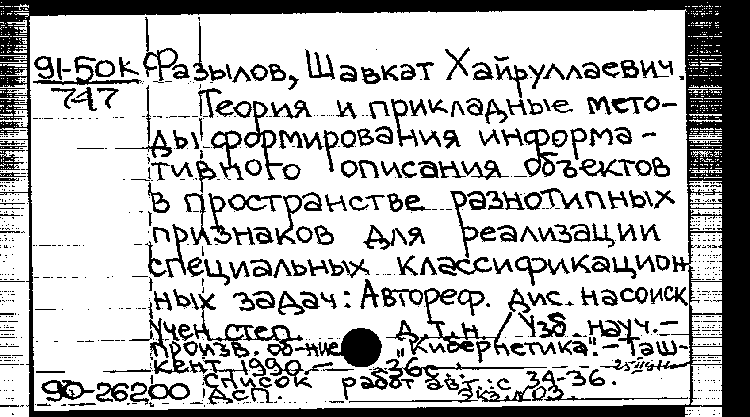 91-50к
747
Фазылов, Шавкат Хайруллаевич.
Теория и прикладные мето-
ды формирования информа-
тивного описания объектов
в пространстве разнотипных
признаков для реализации
специальных классификацион
ных задач: Автореф. дис. на соиск
учен. степ. д.т.н. / Узб. науч.-
произв. об-ние "Кибернетика". - Таш-
кент, 1990. - 36с.
Список работ авт.: с. 34-36.
90-26200 ДСП. Экз. №03.